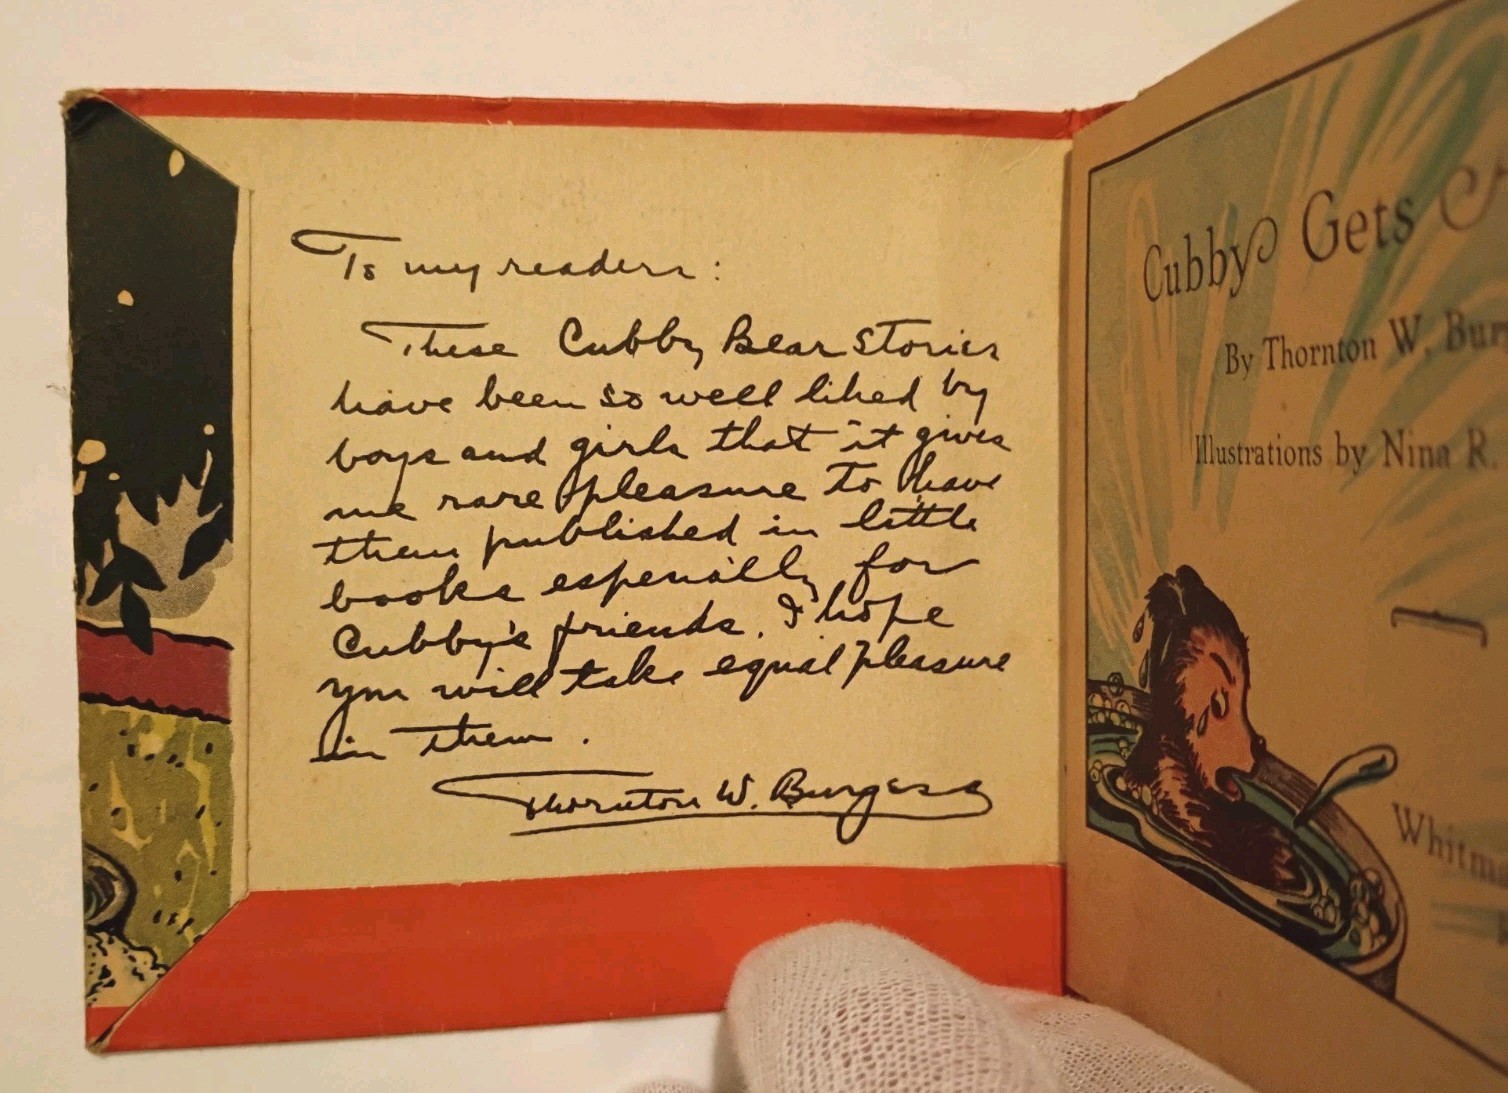 To my readers:
These Cubby Bear stories
have been so well liked by
boys and girls that it gives
me rare pleasure to have
them published in little
books especially for
Cubby's friends. I hope
you will take equal pleasure
in them.
Thornton W. Burgess
Cubby Gets
By Thornton W. Bur
Illustrations by Nina R.
Whitm